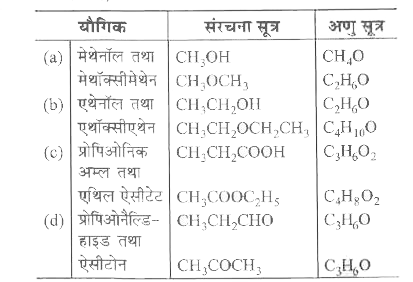 यौगिक संरचना सूत्र अणु सूत्र
(a) मेथेनॉल तथा CH₃OH CH₄O
मेथॉक्सीमेथेन CH₃OCH₃ C₂H₆O
(b) एथेनॉल तथा CH₃CH₂OH C₂H₆O
एथॉक्सीएथेन CH₃CH₂OCH₂CH₃ C₄H₁₀O
(c) प्रोपिओनिक CH₃CH₂COOH C₃H₆O₂
अम्ल तथा
एथिल ऐसीटेट CH₃COOC₂H₅ C₄H₈O₂
(d) प्रोपिओनैल्डि- CH₃CH₂CHO C₃H₆O
हाइड तथा
ऐसीटोन CH₃COCH₃ C₃H₆O